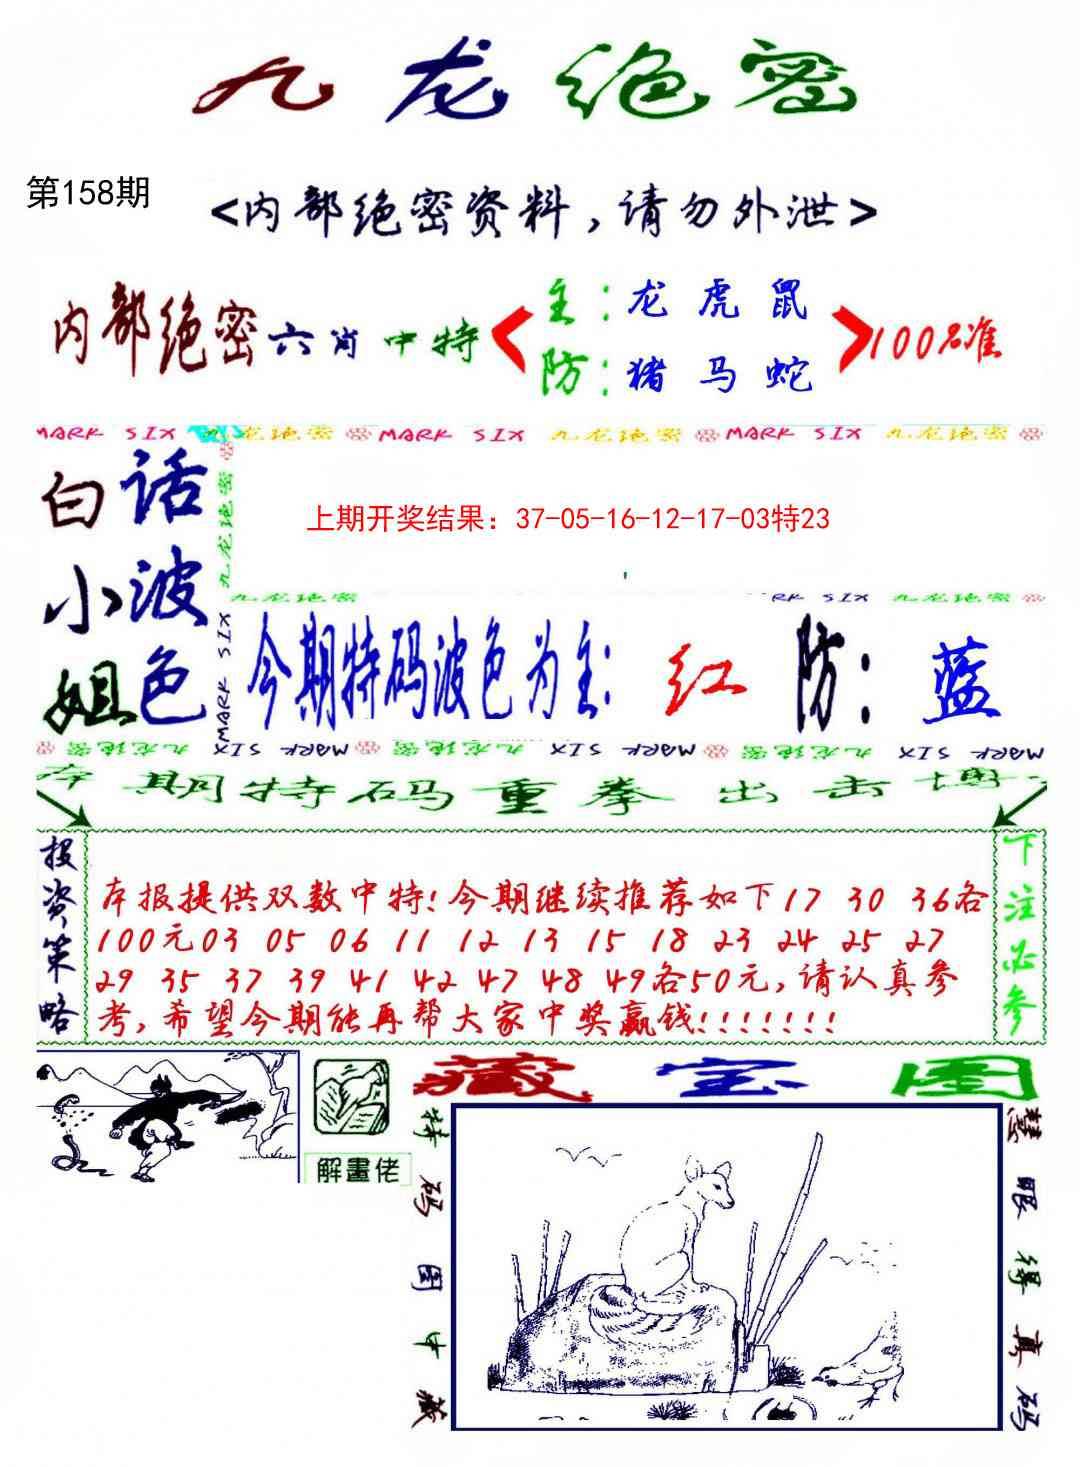 九龙绝密
第158期
<内部绝密资料,请勿外泄>
内部绝密六肖中特
主:龙 虎 鼠
防:猪 马 蛇
100%准
MARK SIX 九龙绝密 MARK SIX 九龙绝密 MARK SIX 九龙绝密
白小姐
话波色
九龙绝密
MARK SIX
上期开奖结果：37-05-16-12-17-03特23
九龙绝密
RK SIX 九龙绝密
今期特码波色为主:红 防:蓝
九龙绝密 MARK SIX 九龙绝密 MARK SIX 九龙绝密 MARK SIX
本期特码重拳出击博
投资策略
本报提供双数中特!今期继续推荐如下17 30 36各
100元03 05 06 11 12 13 15 18 23 24 25 27
29 35 37 39 41 42 47 48 49各50元,请认真参
考,希望今期能再帮大家中奖赢钱!!!!!!!
下注必参
解畫佬
藏宝图
特码图中藏
慧眼得真码